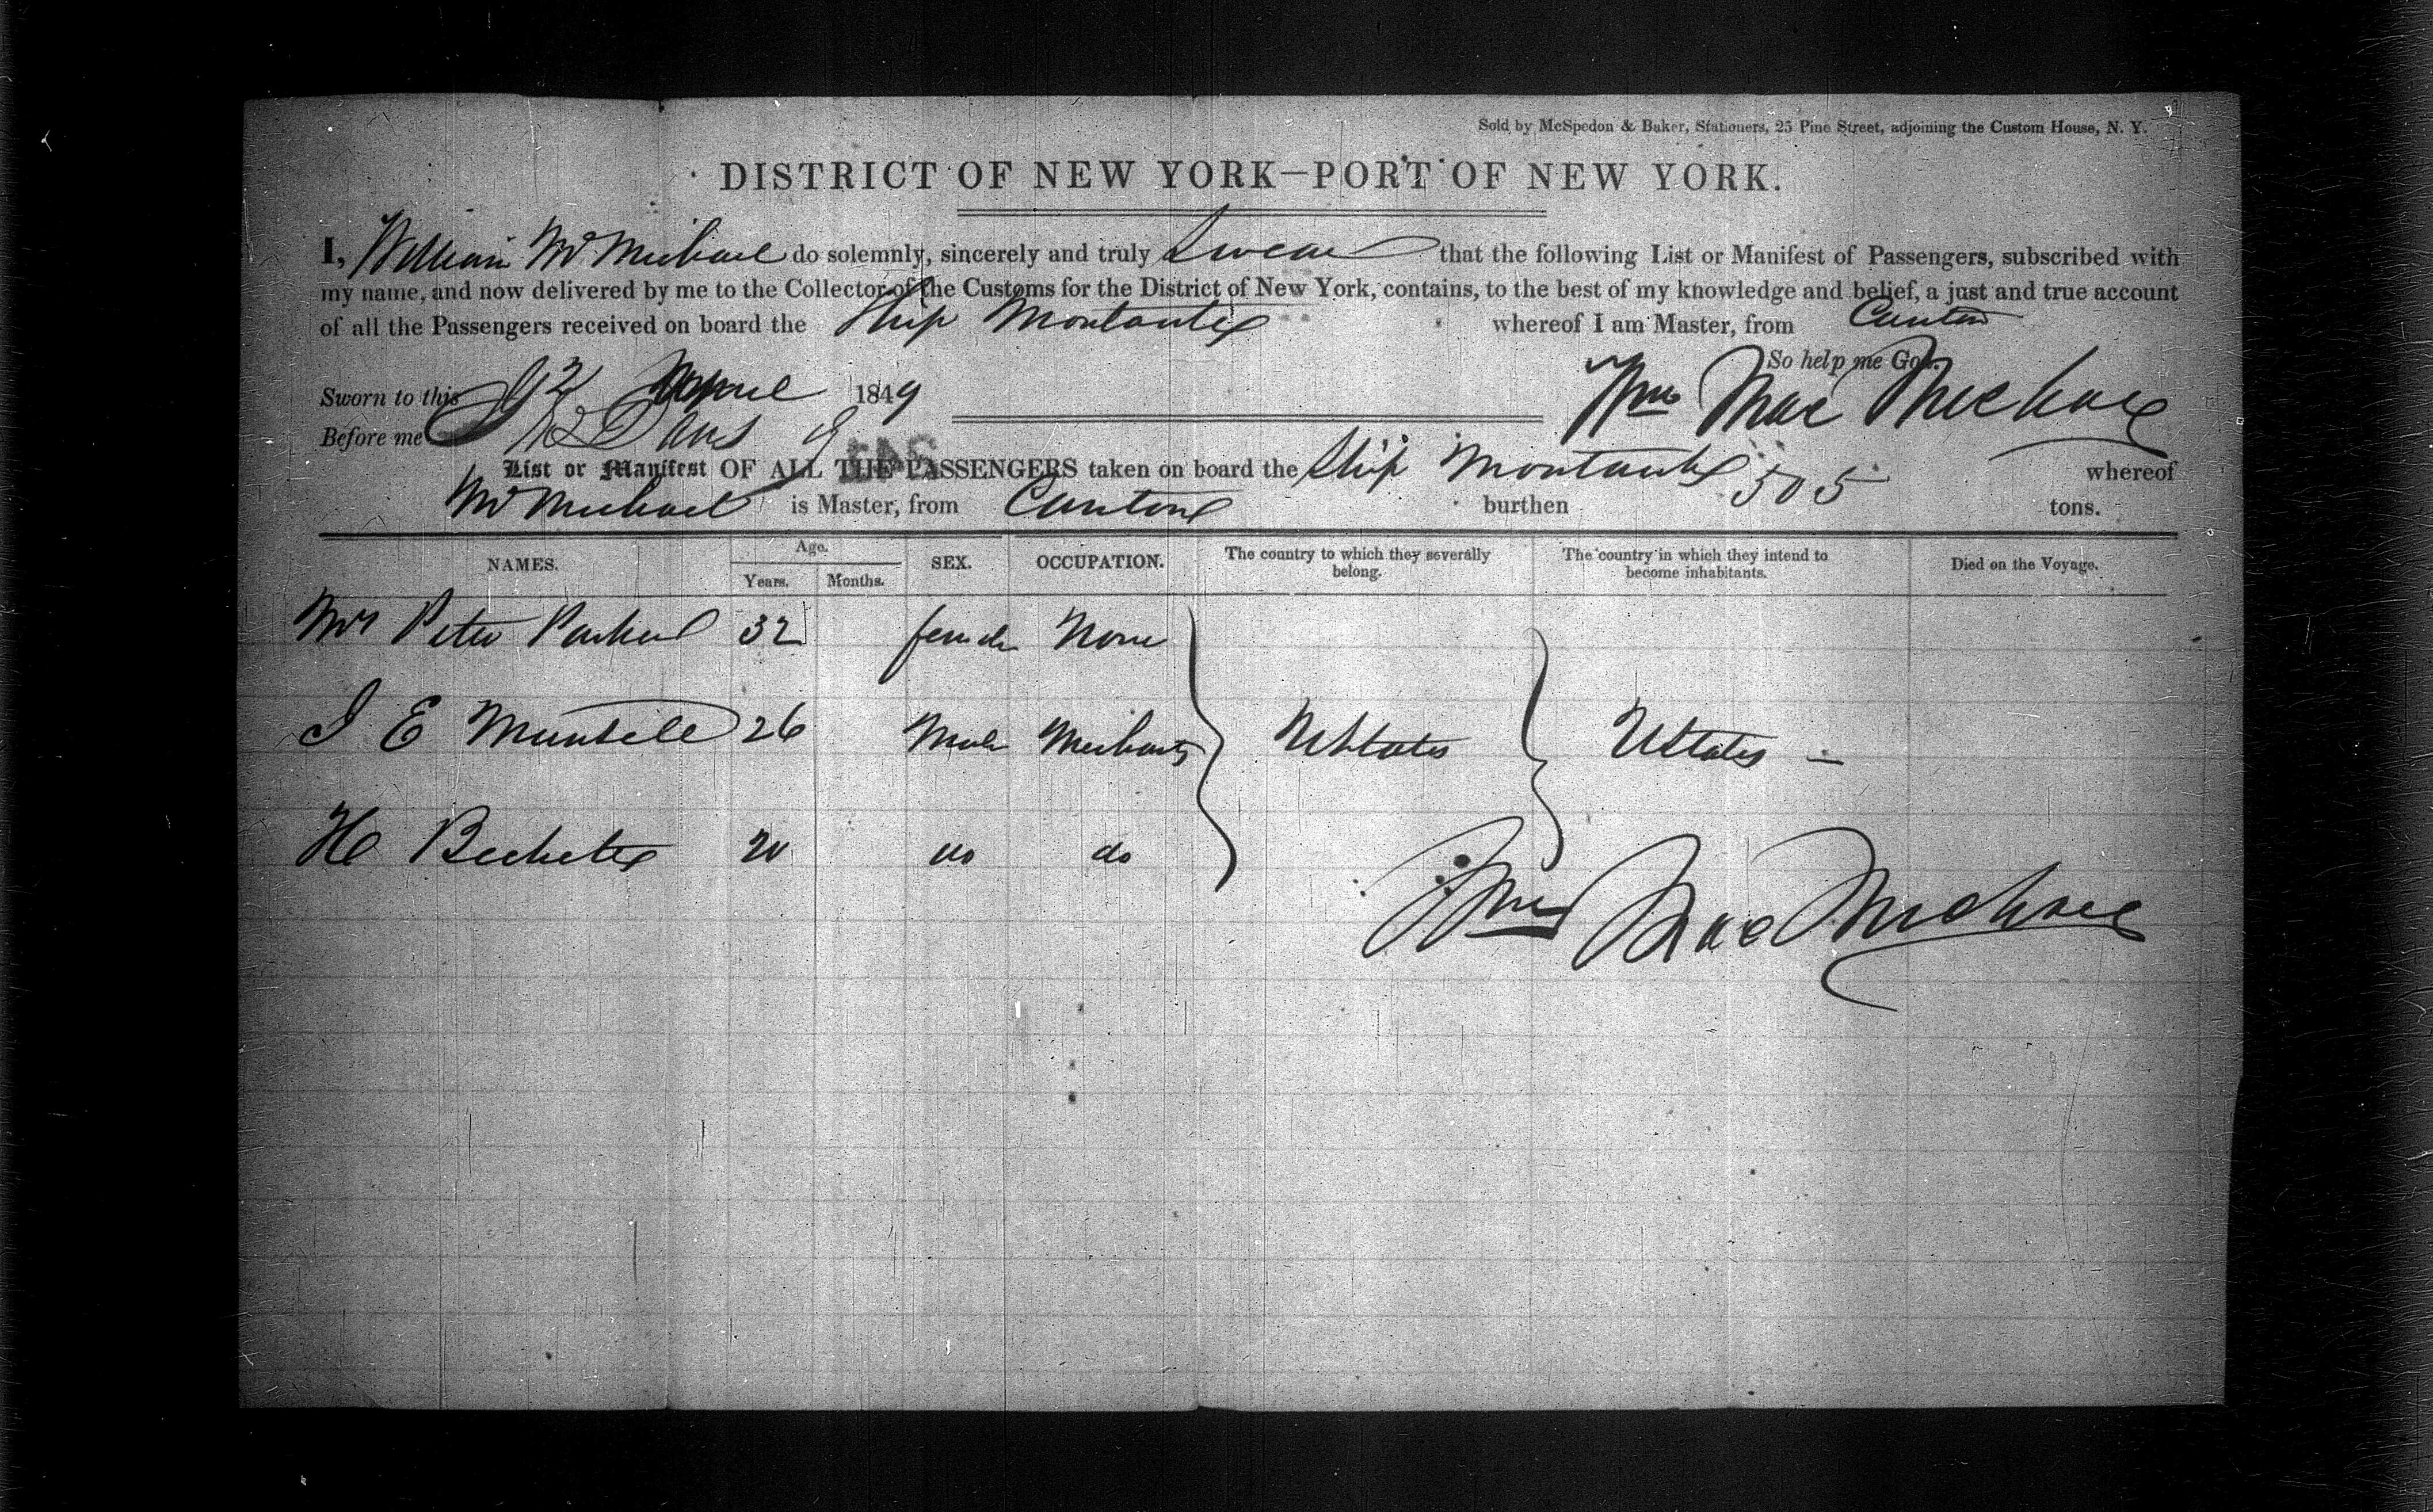 Sold by McSpedon & Baker, Stationers, 25 Pine Street, adjoining the Custom House, N. Y.
DISTRICT OF NEW YORK—PORT OF NEW YORK.
I, William McMichael do solemnly, sincerely and truly Swear that the following List or Manifest of Passengers, subscribed with
my name, and now delivered by me to the Collector of the Customs for the District of New York, contains, to the best of my knowledge and belief, a just and true account
of all the Passengers received on board the Ship Montauk whereof I am Master, from Canton
So help me God.
Sworn to this 12 April 1849 Wm MacMichael
Before me
List or Manifest OF ALL THE PASSENGERS taken on board the Ship Montauk whereof
McMichael is Master, from Canton burthen 505 tons.
NAMES. Age. Years. Months. SEX. OCCUPATION. The country to which they severally belong. The country in which they intend to become inhabitants. Died on the Voyage.
Mrs Peter Parker 32 female None
J E 26 Male Merchant UStates UStates
H 20 do do
Wm MacMichael